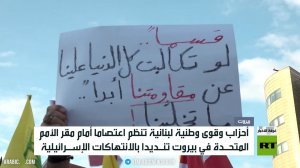 قسماً..
لو تكالبت كل الدنيا علينا
عن مقاومتنا أبداً..
بيروت
أحزاب وقوى وطنية لبنانية تنظم اعتصاما أمام مقر الأمم
المتحدة في بيروت تنديدا بالانتهاكات الإسرائيلية
RT
ARABIC.